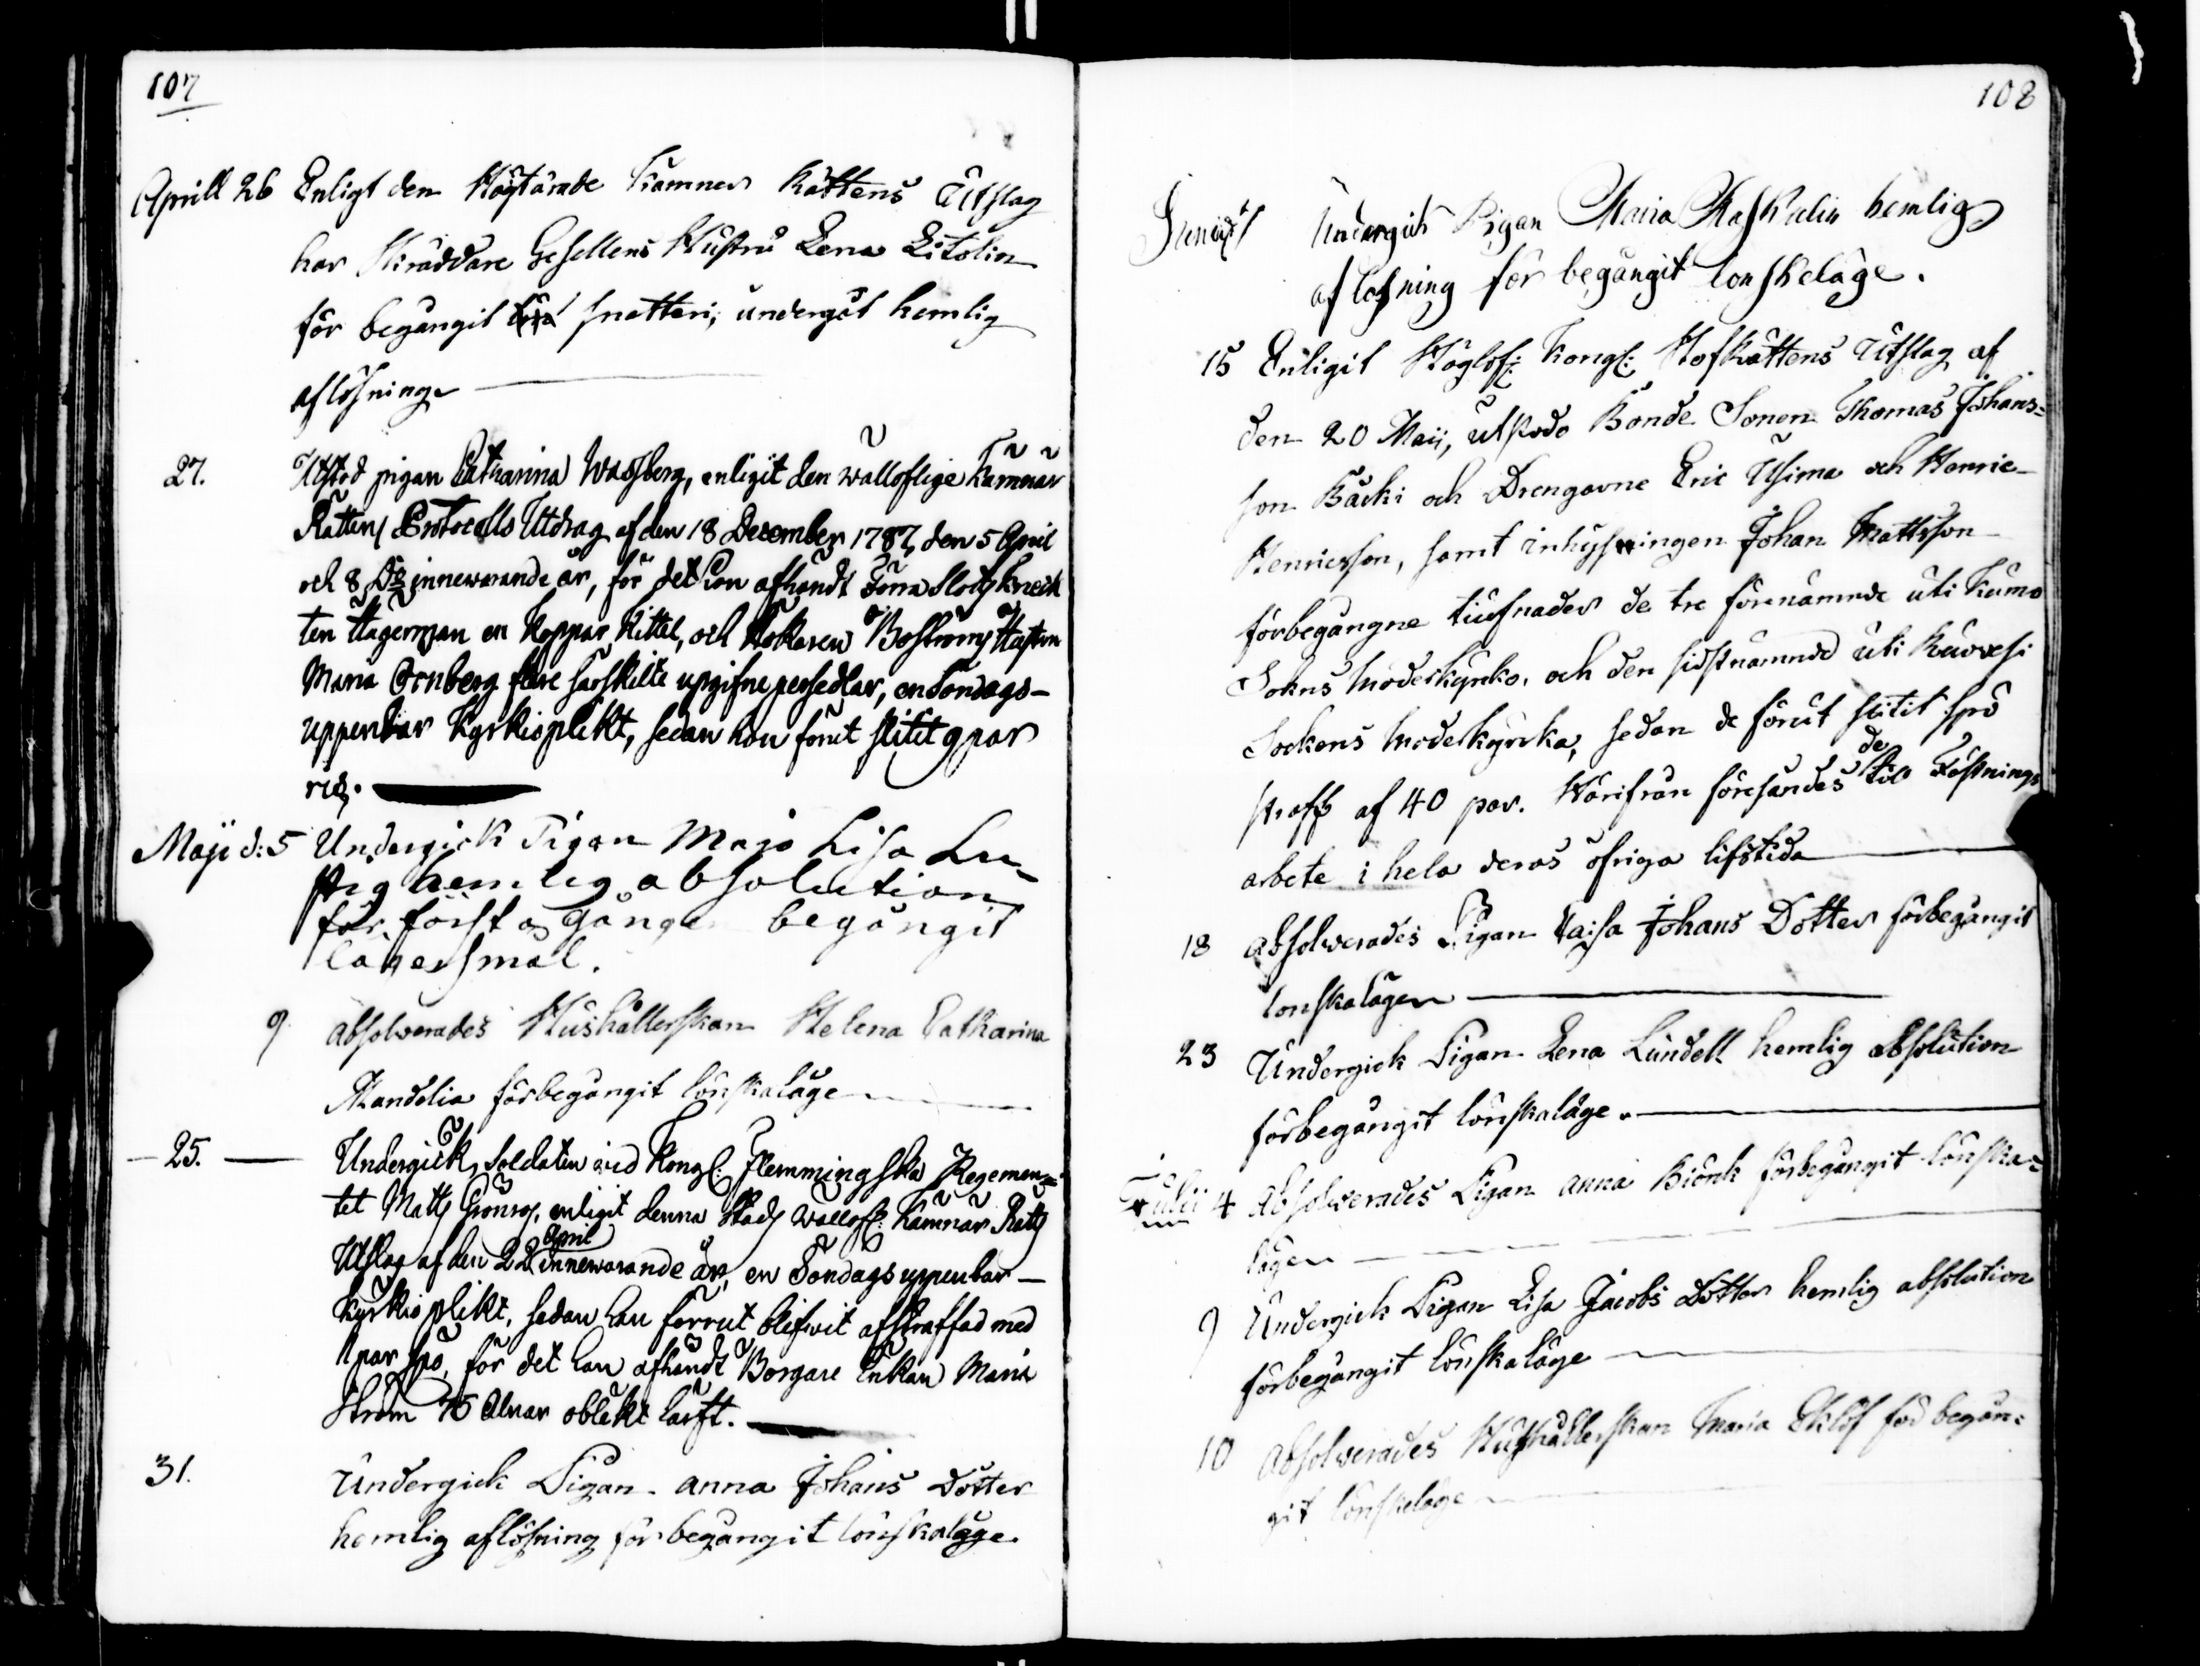 107
Aprill 26 Enligt den Högtärade Kämner Rättens Utslag
har Skräddare Gesellens Hustru Lena Litolin
för begångit snatteri, undergåt hemlig
aflösning
27. Utstod pigan Catharina Wassberg, enligit den wälloflige Kämnär
Rättens Protocolls Utdrag af den 18 December 1787, den 5 April
och 8 Ds innewarande år, för det hon afhändt Förra Slotts kneck
ten Hagerman en Koppar Kittel, och Bostroms Hustru
Maria Örnberg flere särskilte upgifne persedlar, en Söndags-
uppenbar Kyrkioplikt, sedan hon förut slitit 9 par
ris.
Maji d: 5 Undergick Pigan Maja Lisa Lu-
stig hemlig absolution
för första gången begångit
lägersmål.
9 Absolverades Hushållerskan Helena Catharina
Mandelia förbegångit lönskaläge
25. Undergick, Soldaten wid Kongl: Flemmingska Regemen=
tet Matts Grönroos, enligit denna Stads Wällofl: Kämnär Rätts
Utslag af den 22 April innewarande år, en Söndags uppenbar-
Kyrkio plikt, sedan han förrut blifwit afstraffad med
par spö, för det han afhändt Borgare Enkan Maria
Ström 75 Alnar oblekt lärft.
31. Undergick Pigan Anna Johans Dotter
hemlig aflösning för begångit lönskaläge.
108
Junii Undergick Pigan Maria hemlig
aflösning för begångit lönskeläge.
15 Enligit Höglofl: Kongl: Hofrättens Utslag af
den 20 Maii, utstodo Bonde Sonen Thomas Johans=
son Bäcki och Drengarne Eric Usima och Henric
Henricsson, samt inhysningen Johan Mattsson
förbegångne tiufnader de tre förenämnde uti Kumo
Sokns Moderkyrko, och den sidstnämnde uti
Sockens Moderkyrcka, sedan de förut slitit spö
straff af 40 par. Härifrån försändes de til Fästnings
arbete i hela deras öfriga lifstida
18 Absolverades Pigan Caisa Johans Dotter förbegångit
lönskalägen
23 Undergick Pigan Lena Lundell hemlig absolution
förbegångit lönskaläge.
Julii 4 Absolverades Pigan Anna Biönk förbegångit lönska=
lägen
9 Undergick Pigan Lisa Jacobs Dotter hemlig absolution
förbegångit lönskaläge
10 Absolverades Hushållerskan Maria Eklöf för begån=
git lönskeläge